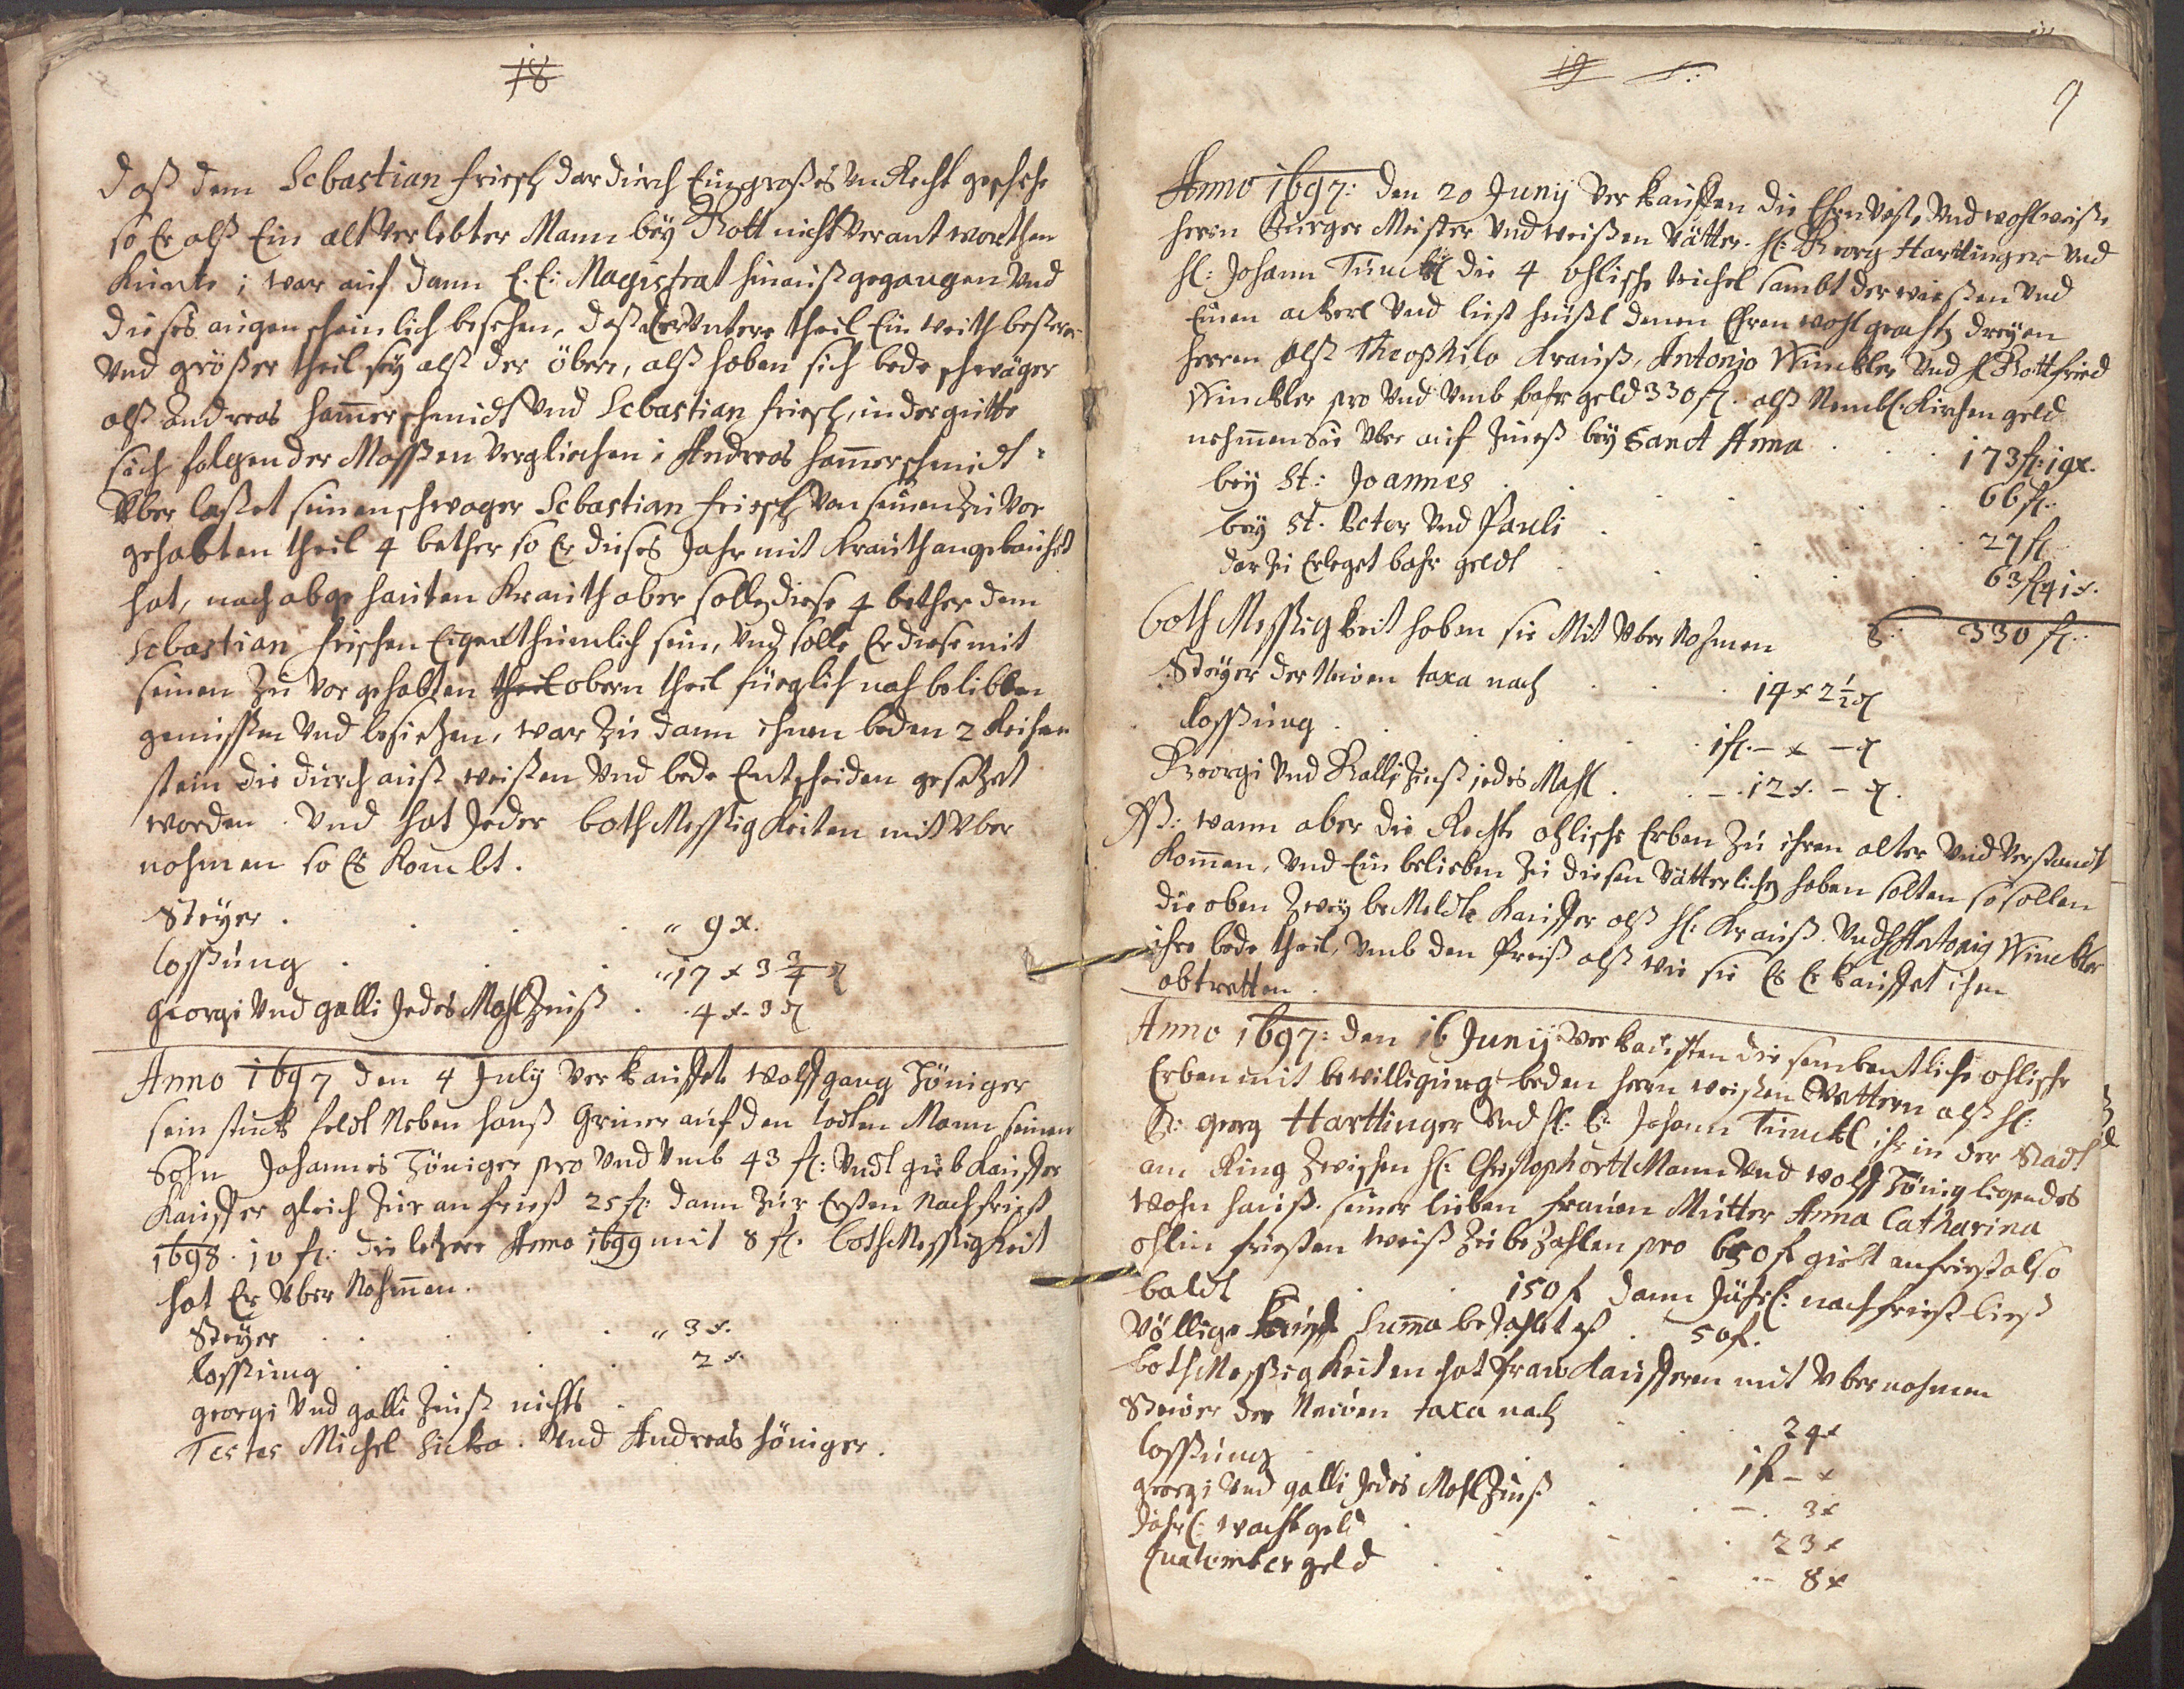 18
daß dem Sebastian friesch dardurch Ein großes Un Recht geschehe
so Er alß Ein alt Verlebter Mann bey Gott nicht Verantworthen
Kunte; war auf dann E. E: Magistrat hinauß gegangen Und
dieses augenscheinlich besehen, daß der Untere theil Ein weith bestere
Und größer theil sey alß der öbere, alß haben sich bede schwäger
alß Andreas Hamerschmidt Und Sebastian friesch, in der gütte
sich folgender Massen Verglichen: Andreas Hamerschmidt
Vber lasset seinen schwager Sebastian friesch Von seinen zu Vor
gehabten theil 4 bether so Er dieses Jahr mit Krauth angebauhet
hat, nach abge hauten Krauth aber solle diese 4 bether dem
Sebastian frischen Eigenthümlich sein, Und solle Er diese mit
seinen zu Vor gehabten theil obern theil füeglich nach belibben
geniessen Und besietzen, war zu dann ihnen beden 2 Reihen
stein die durch auß weißen Und bede Entscheiden gesetzet
worden. Und hat Jeder bothMessigKeiten mit Vber
nohmen so Es Kombt.
Steyer . . . . " 9 x.
lossung . . . "17 x 3 3/4 ₰
georgi Und galli Jedes Mahl Zinß . . 4 x. 3 ₰
Anno 1697 den 4 July Verkauffet Wolfgang Zöniger
sein stuck feldt Neben Hanß Griner auf den todten Mann seinen
Sohn Johannes Zöniger pro Und Umb 43 fl: Undt gieb Kauffer
Kauffer gleich zur anfriest 25 fl: dann zur Ersten Nachfriest
1698. 10 fl: die letzere Anno 1699 mit 8 fl. bothMessigkeit
hat Er Vber Nohmen.
Steyer . . . . " 3 x.
lossung . . . . 2 x
georgi Und galli Zinß nichts .
Testes Michel Sicka. Und Andreas Höniger.
19
9
Anno 1697: den 20 Junij Verkauffen die Ehrnveste Und wohlweise
herrn Burger Meister Und weißen Vätter. H: Georg Hartlinger Und
H: Johann Tünckl die 4 ohlische teichel sambt der wießen Und
Einen ackerl Und lust heußl denen Ehren wohlgeachten dreyen
Herren alß Theophilo Krauß, Antonio Winckler Und H Gottfried
Winckler pro Und Umb bahr geld 330 fl. alß Nembl: Kirchen geld
nehmen sie Vber auf Zinß bey Sanct Anna . . . 173 fl: 19x.
bey St: Joannes . . . . 66 fl:
bey St. Peter Und Pauli . . . . 27 fl
dar zu Erleget bahr geldt . . . . 63 fl 41 x.
330 fl:
bothMessigkeit haben sie Mit Vber Nohmen
Steyer der Neuen taxa nach . . . 14 x 2 1/2 ₰
lossung . . . . 1 fl. – x – ₰
Georgi Und Galli Zinß jedes Mahl . . – . 12 x. – ₰.
wann aber die Rechte ohlische Erben zu ihren alter Und Verstandt
Kommen, Und Ein belieben zu diesen Vätterlichen haben solten so sollen
die oben Zwey beMeldte Kauffer alß H: Krauß Und H Antonig Winckler
ihre bede theil, Umb den Preiß alß wie sie Es Erkauffet ihm
abtretten.
Anno 1697: den 16 Junij Verkauften die sembentliche ohlische
Erben mit bewilligung beden herrn weißen Vattern alß H:
B: Georg Harttinger Und H: B: Johann Tünckl ihr in der Stadt
am Ring zwischen H: Christoph ortlMann Und Wolf Zönig ligendes
Wohn hauß. seiner lieben frauen Mutter Anna Catharina
ohlin friesten weiß zu bezahlen pro 650 f giebt anfriest also
baldt . . 150 f dann Jährl: nachfriest bieß
Völlige Kauf Suma bezahlet ist . 50 f.
bothMessigkeiten hat fraw Kaufferin mit Vbernohmen
Steuer der Neuen taxa nach . . . 24 x
lossung . . . 1 fl – x
georgi Und galli Jedes Mahl Zinß . . – . 3 x
Jahrl: wachtgeld . . . . 23 x
Quatembergeld . . . . 8 x